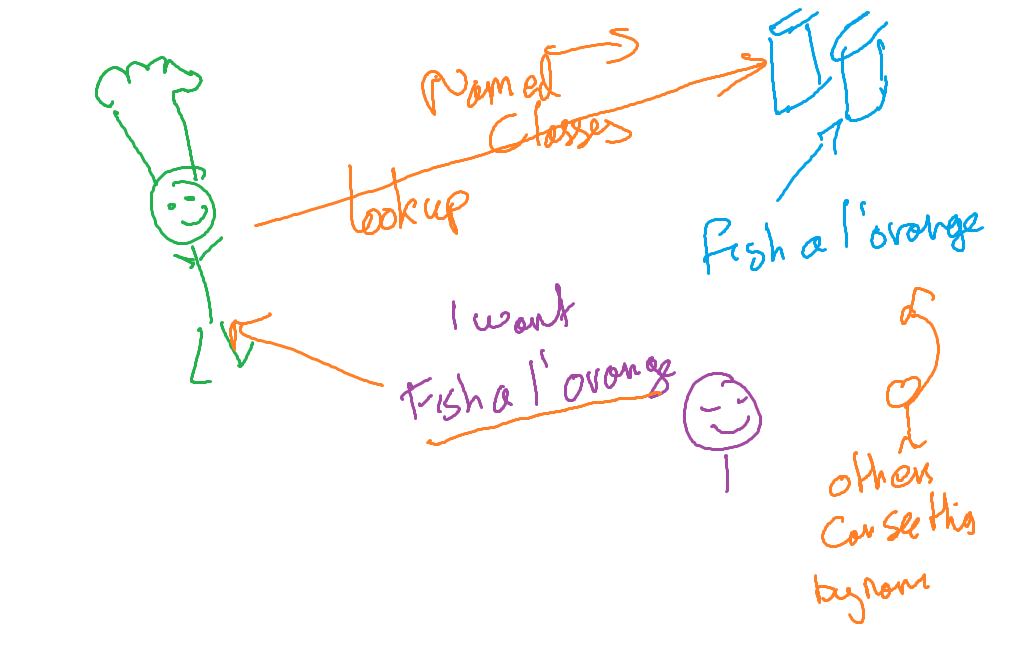 Named
Classes
Lookup
Fish a l'orange
I want
Fish a l'orange
others
Can see this
by nam